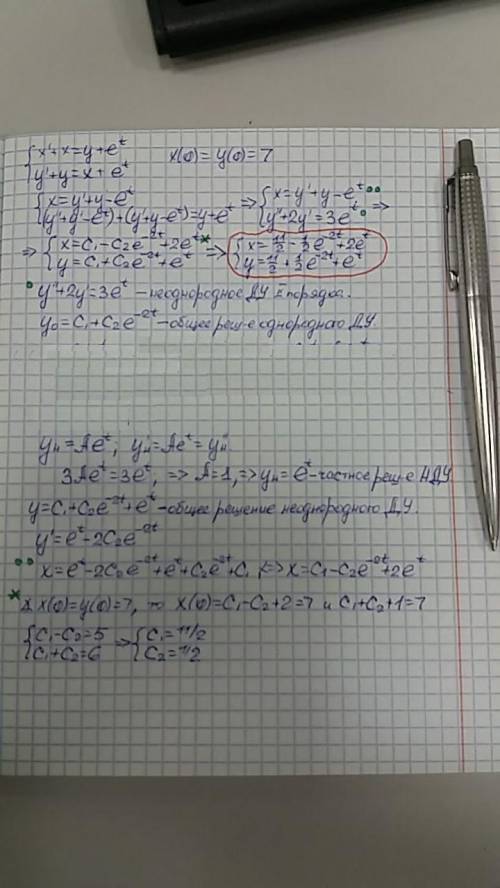 {x'+x=y+eᵗ  x(0)=y(0)=7
{y'+y=x+eᵗ
{x=y'+y-eᵗ => {x=y'+y-eᵗ •• =>
{(y'+y-eᵗ)'+(y'+y-eᵗ)=y+eᵗ {y''+2y'=3eᵗ •
=> {x=C₁-C₂e⁻²ᵗ+2eᵗ * => {x=11/2-1/2e⁻²ᵗ+2eᵗ
{y=C₁+C₂e⁻²ᵗ+eᵗ {y=11/2+1/2e⁻²ᵗ+eᵗ
• y''+2y'=3eᵗ - неоднородное ДУ II порядка.
y₀=C₁+C₂e⁻²ᵗ - общее реш-е однородного ДУ
yн=Aeᵗ; y'н=Aeᵗ=y''н
3Aeᵗ=3eᵗ, => A=1, => yн=eᵗ - частное реш-е НДУ
y=C₁+C₂e⁻²ᵗ+eᵗ - общее решение неоднородного ДУ.
y'=eᵗ-2C₂e⁻²ᵗ
•• x=eᵗ-2C₂e⁻²ᵗ+eᵗ+C₂e⁻²ᵗ+C₁, => x=C₁-C₂e⁻²ᵗ+2eᵗ
* x(0)=y(0)=7, то x(0)=C₁-C₂+2=7 и C₁+C₂+1=7
{C₁-C₂=5 => {C₁=11/2
{C₁+C₂=6 {C₂=1/2